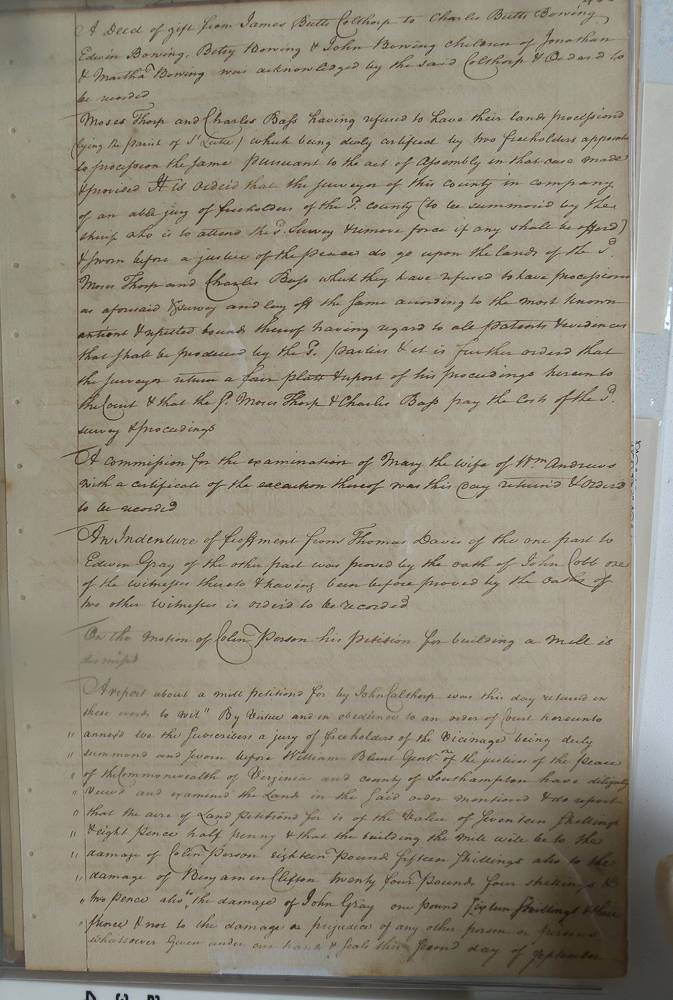 A Deed of gift from James Butts Colthorp to Charles Butts Bowing
Edwin Bowing, Betsy Bowing & John Bowing children of Jonathan
& Martha Bowing was acknowledged by the said Colthorp & Ordered to
be recorded
Moses Thorp and Charles Bass having refused to have their lands processiond
lying the parish of St. Luke) which being duly certified by two freeholders appointed
to procession the same pursuant to the act of Assembly in that case made
& provised It is orderd that the surveyor of this county in company
of an able jury of freeholders of the sd. county (to be summoned by the
sherif who is to attend the sd. survey & remove force if any shall be offerd)
& sworn before a justice of the peace do go upon the lands of the sd.
Moses Thorp and Charles Bass which they have refused to have processiond
as aforesaid & survey and lay off the same according to the most known
antient & reputed bounds thereof having regard to all patents & evidences
that shall be produced by the sd. parties & it is further orderd that
the surveyor return a fair platt & report of his proceedings herein to
the Court & that the sd. Moses Thorp & Charles Bass pay the Costs of the sd.
survey & proceedings
A commission for the examination of Mary the wife of Wm Andrews
with a certificate of the execution thereof was this day returnd & Orderd
to be recorded
An Indenture of feoffment from Thomas Davis of the one part to
Edwin Gray of the other part was proved by the oath of John Cobb one
of the witnesses thereto & having been before proved by the oaths of
two other witnesses is orderd to be recorded
On the motion of Colin Person his petition for building a mill is
dismisst
A report about a mill petitiond for by John Calthorp was this day returnd in
these words to wit " By virtue and in obedience to an order of Court hereunto
" annexd we the subscribers a jury of freeholders of the vicinage being duly
" summond and sworn before William Blunt Gentn. of the justices of the peace
" of the Commonwealth of Virginia and county of Southampton have diligently
" viewd and examined the Lands in the said order mentiond & do report
" that the acre of Land petitiond for is of the value of seventeen shillings
" & eight pence half penny & that the building the mill will be to the
" damage of Colin Person eighteen pounds fifteen shillings also to the
" damage of Benjamin Clifton twenty four pounds four shillings &
" two pence also to the damage of John Gray one pound sixteen shillings & three
" pence & not to the damage or prejudice of any other person or persons
whatsoever Given under our hands & seals this second day of september